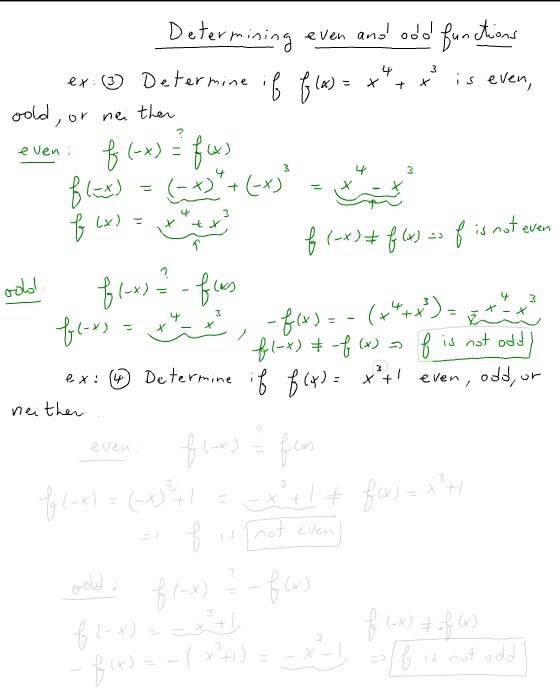 Determining even and odd functions
ex: ③ Determine if f(x) = x⁴ + x³ is even,
odd, or neither
even: f(-x) ≟ f(x)
f(-x) = (-x)⁴ + (-x)³ = x⁴ - x³
f(x) = x⁴ + x³
f(-x) ≠ f(x) => f is not even
odd: f(-x) ≟ - f(x)
f(-x) = x⁴ - x³, -f(x) = - (x⁴ + x³) = -x⁴ - x³
f(-x) ≠ -f(x) => f is not odd
ex: ④ Determine if f(x) = x³+1 even, odd, or
neither
even: f(-x) ≟ f(x)
f(-x) = (-x)³+1 = -x³+1 ≠ f(x) = x³+1
=> f is not even
odd: f(-x) ≟ - f(x)
f(-x) = -x³+1 f(-x) ≠ -f(x)
- f(x) = -(x³+1) = -x³-1 => f is not odd